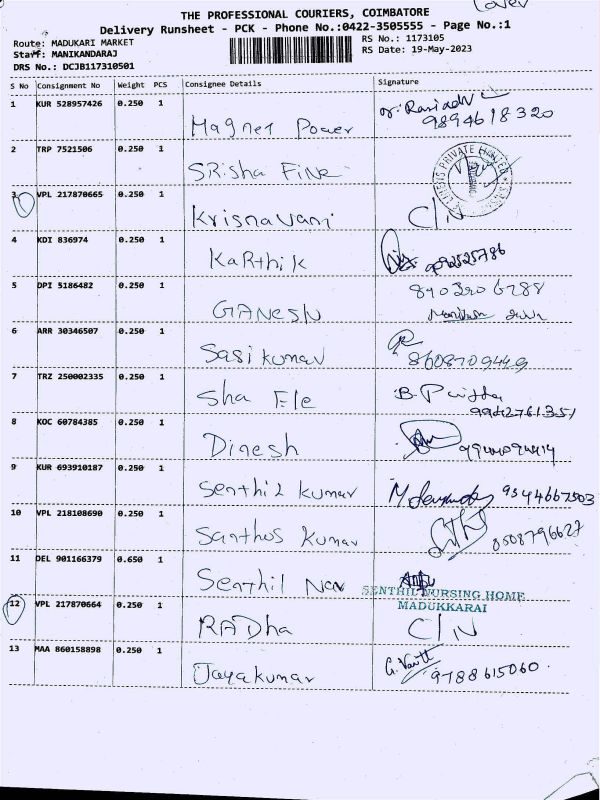 THE PROFESSIONAL COURIERS, COIMBATORE
Delivery Runsheet - PCK - Phone No.:0422-3505555 - Page No.:1
Route: MADUKARI MARKET
RS No.: 1173105
Staff: MANIKANDARAJ
RS Date: 19-May-2023
DRS No.: DCJB117310501
S No Consignment No Weight PCS Consignee Details Signature
1 KUR 528957426 0.250 1 Magnet Power 9894618320
2 TRP 7521506 0.250 1 SRisha FINE
3 VPL 217870665 0.250 1 Krisnavani C/N
4 KDI 836974 0.250 1 Karthik 9092525786
5 DPI 5186482 0.250 1 GANESH
6 ARR 30346507 0.250 1 Sasikumar 8608709449
7 TRZ 250002335 0.250 1 Sha Ele 9942761351
8 KOC 60784385 0.250 1 Dinesh
9 KUR 693910187 0.250 1 Senthil Kumar
10 VPL 218108690 0.250 1 Santhos Kumar 8508796627
11 DEL 901166379 0.650 1 Senthil Nar
SENTHIL NURSING HOME
MADUKKARAI
12 VPL 217870664 0.250 1 RADha C/N
13 MAA 860158898 0.250 1 Jayakumar 9788615060